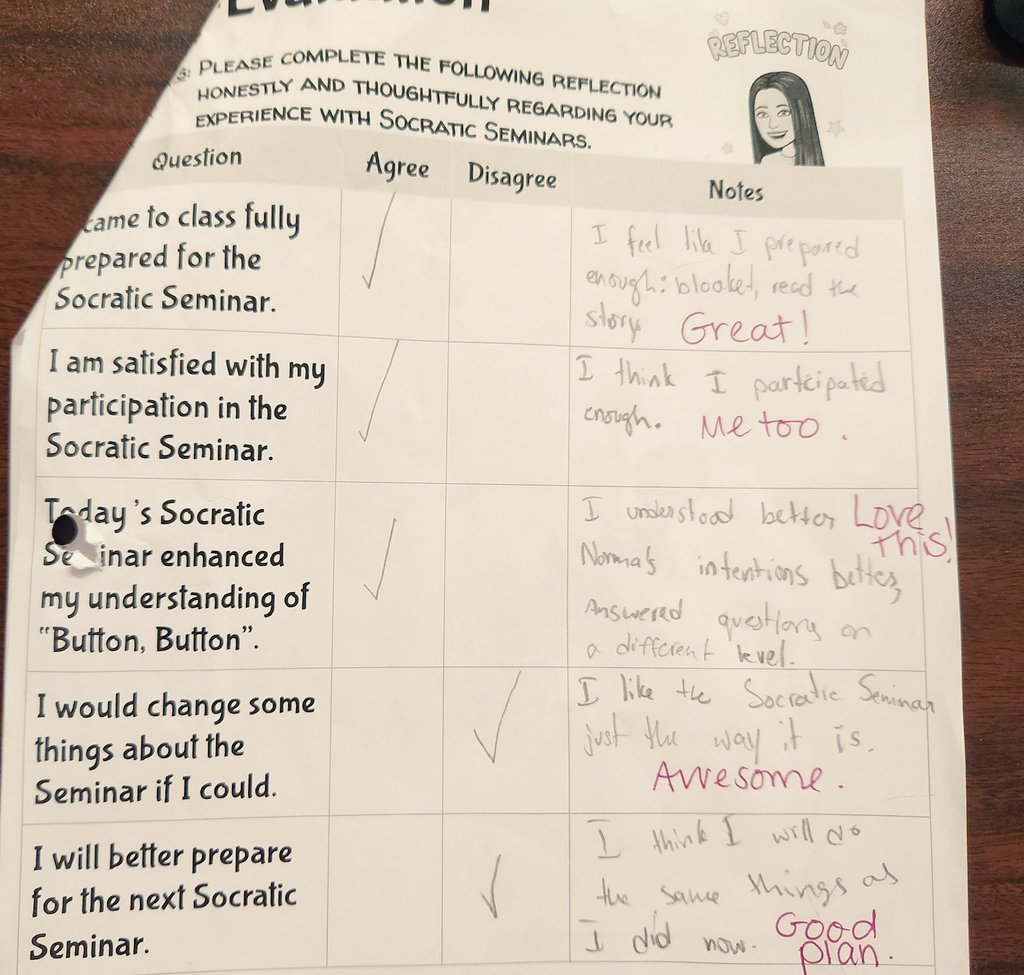 Evaluation
REFLECTION
s: PLEASE COMPLETE THE FOLLOWING REFLECTION
HONESTLY AND THOUGHTFULLY REGARDING YOUR
EXPERIENCE WITH SOCRATIC SEMINARS.
Question Agree Disagree Notes
came to class fully
prepared for the
Socratic Seminar.
I feel like I prepared
enough: blooket, read the
story. Great!
I am satisfied with my
participation in the
Socratic Seminar.
I think I participated
enough. Me too.
Today's Socratic
Se inar enhanced
my understanding of
"Button, Button".
I understood better Love
this!
Norma's intentions better,
Answered questions on
a different level.
I would change some
things about the
Seminar if I could.
I like the Socratic Seminar
just the way it is.
Awesome.
I will better prepare
for the next Socratic
Seminar.
I think I will do
the same things as
I did now. Good
plan.